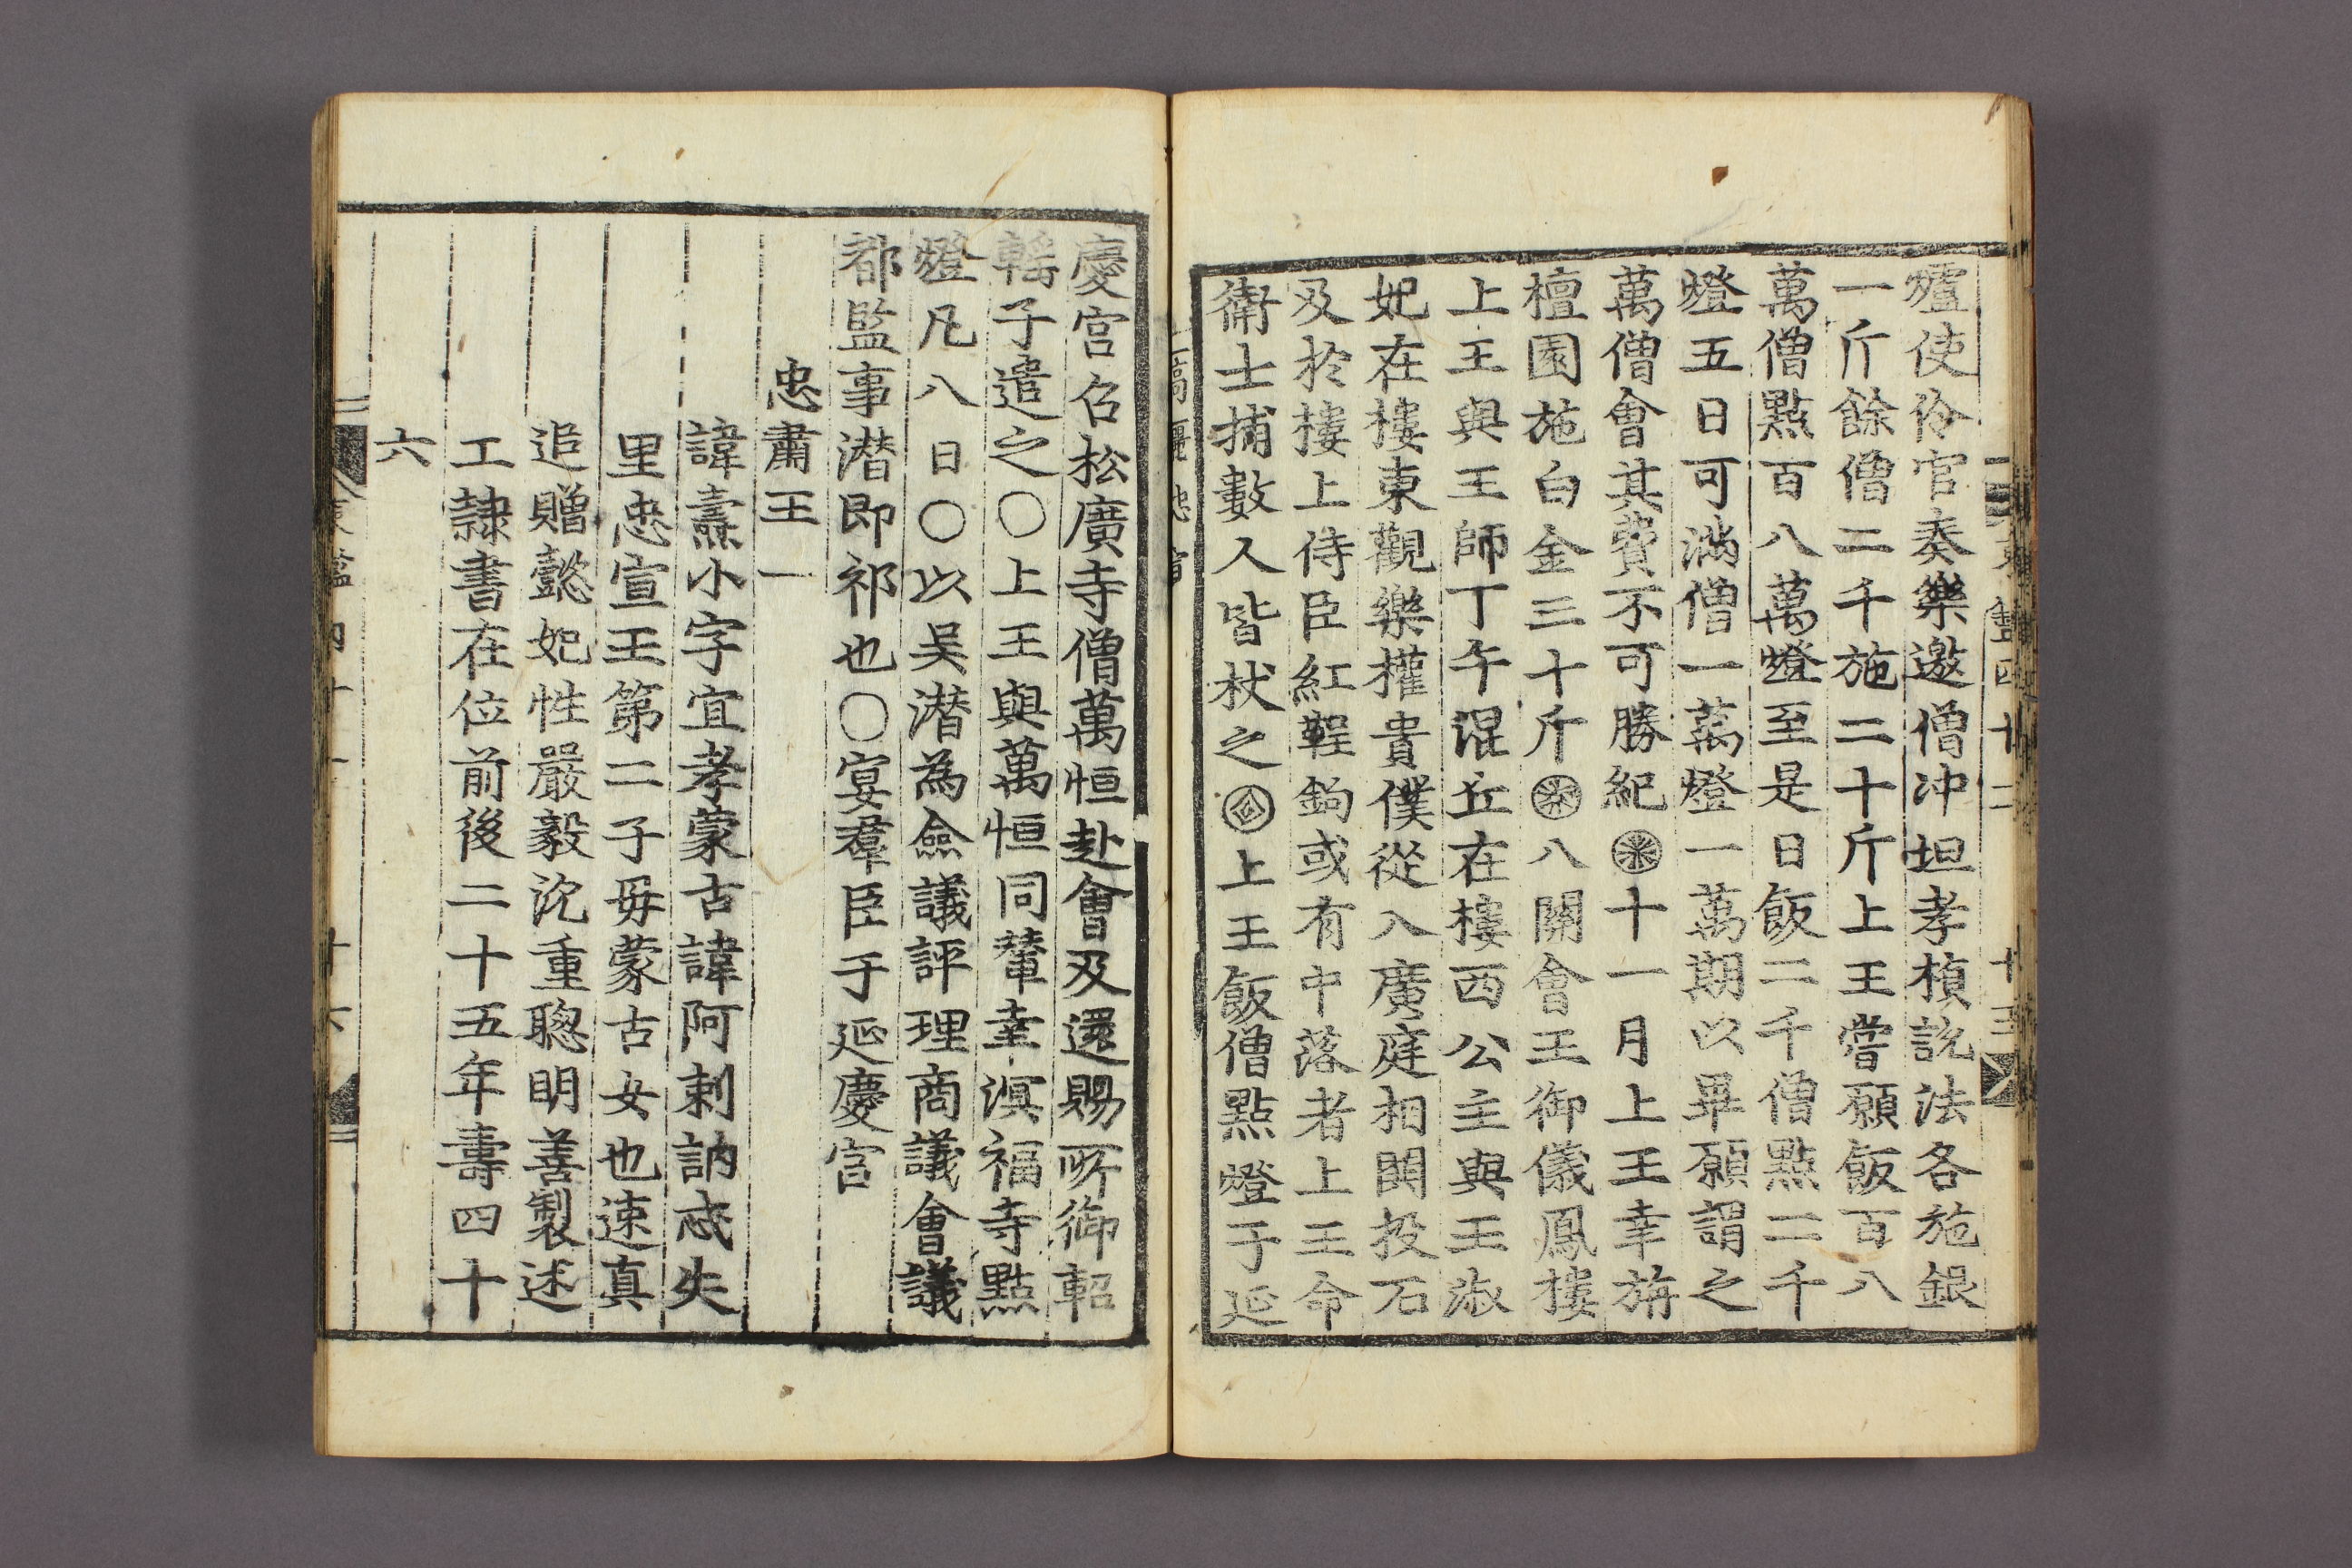 爐使伶官奏樂邀僧冲坦孝楨說法各施銀
一斤餘僧二千施二十斤上王嘗願飯百八
萬僧點百八萬燈至是日飯二千僧點二千
燈五日可滿僧一萬燈一萬期以畢願謂之
萬僧會其費不可勝紀十一月上王幸旃
檀園施白金三十斤八關會王御儀鳳樓
上王與王師丁午混丘在樓西公主與王淑
妃在樓東觀樂權貴僕從入廣庭相鬪投石
及於樓上侍臣紅鞓鉤或有中落者上王命
衛士捕數人皆杖之上王飯僧點燈于延
慶宮召松廣寺僧萬恒赴會及還賜所御軺
轎子遣之○上王與萬恒同輦幸溟福寺點
燈凡八日○以吴潜為僉議評理商議會議
都監事潜即祁也○宴羣臣于延慶宮
忠肅王一
諱燾小字宜孝蒙古諱阿剌訥忒失
里忠宣王第二子毋蒙古女也速真
追贈懿妃性嚴毅沉重聰明善製述
工隷書在位前後二十五年壽四十
六